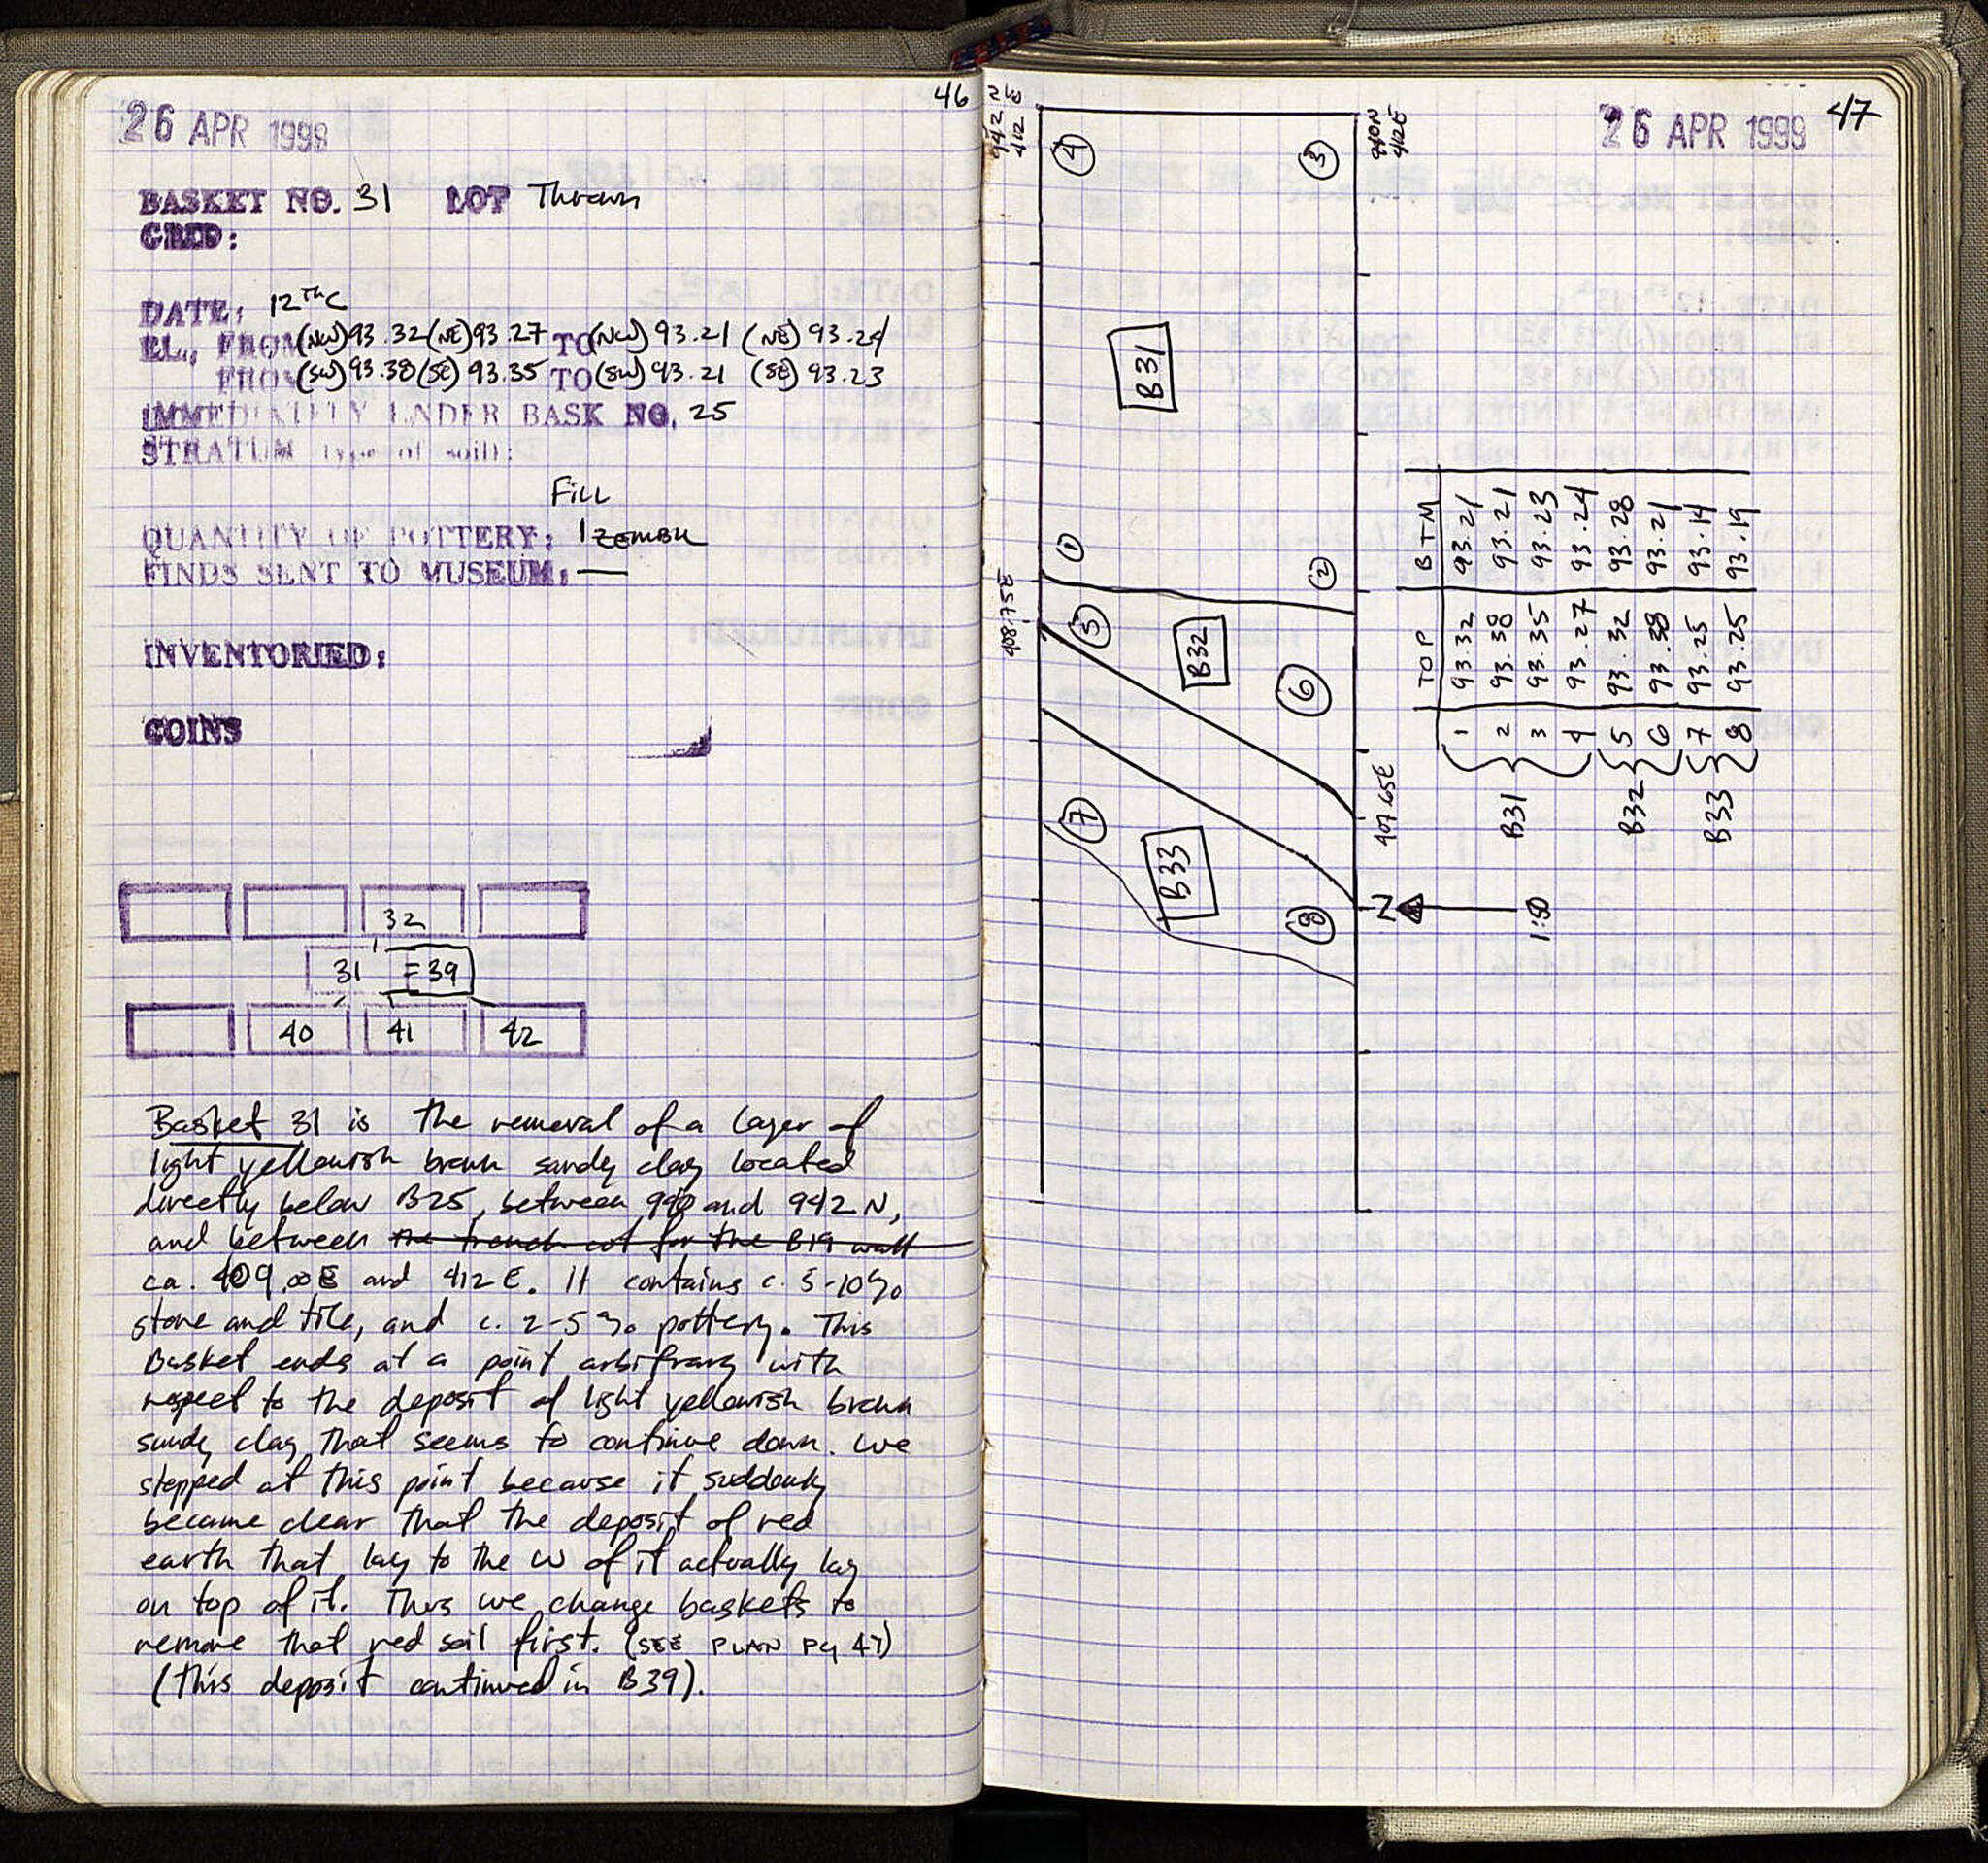 46
26 APR 1999
BASKET NO. 31 LOT Thrown
GRID:
DATE: 12ThC
EL., FROM (NW) 93.32 (NE) 93.27 TO (NW) 93.21 (NE) 93.24
FROM (SW) 93.38 (SE) 93.35 TO (SW) 93.21 (SE) 93.23
IMMEDIATELY UNDER BASK NO. 25
STRATUM (type of soil):
Fill
QUANTITY OF POTTERY: 1 ZEMBIL
FINDS SENT TO MUSEUM: —
INVENTORIED:
COINS
32
31 =39
40 41 42
Basket 31 is the removal of a layer of
light yellowish brown sandy clay located
directly below B25, between 940 and 942 N,
and between the trench cut for the B19 wall
ca. 409.00E and 412 E. It contains c. 5-10%
stone and tile, and c. 2-5% pottery. This
Basket ends at a point arbitrary with
respect to the deposit of light yellowish brown
sandy clay that seems to continue down. We
stopped at this point because it suddenly
became clear that the deposit of red
earth that lay to the W of it actually lay
on top of it. Thus we change baskets to
remove that red soil first. (SEE PLAN Pg 47)
(This deposit continued in B39).
47
26 APR 1999
942
412
940N
412E
4
3
B31
1
2
408.75E
5
B32
6
407.65E
7
B33
8
N
1:50
TOP BTM
B31
1 93.32 93.21
2 93.38 93.21
3 93.35 93.23
4 93.27 93.24
B32
5 93.32 93.28
6 93.38 93.21
B33
7 93.25 93.14
8 93.25 93.19